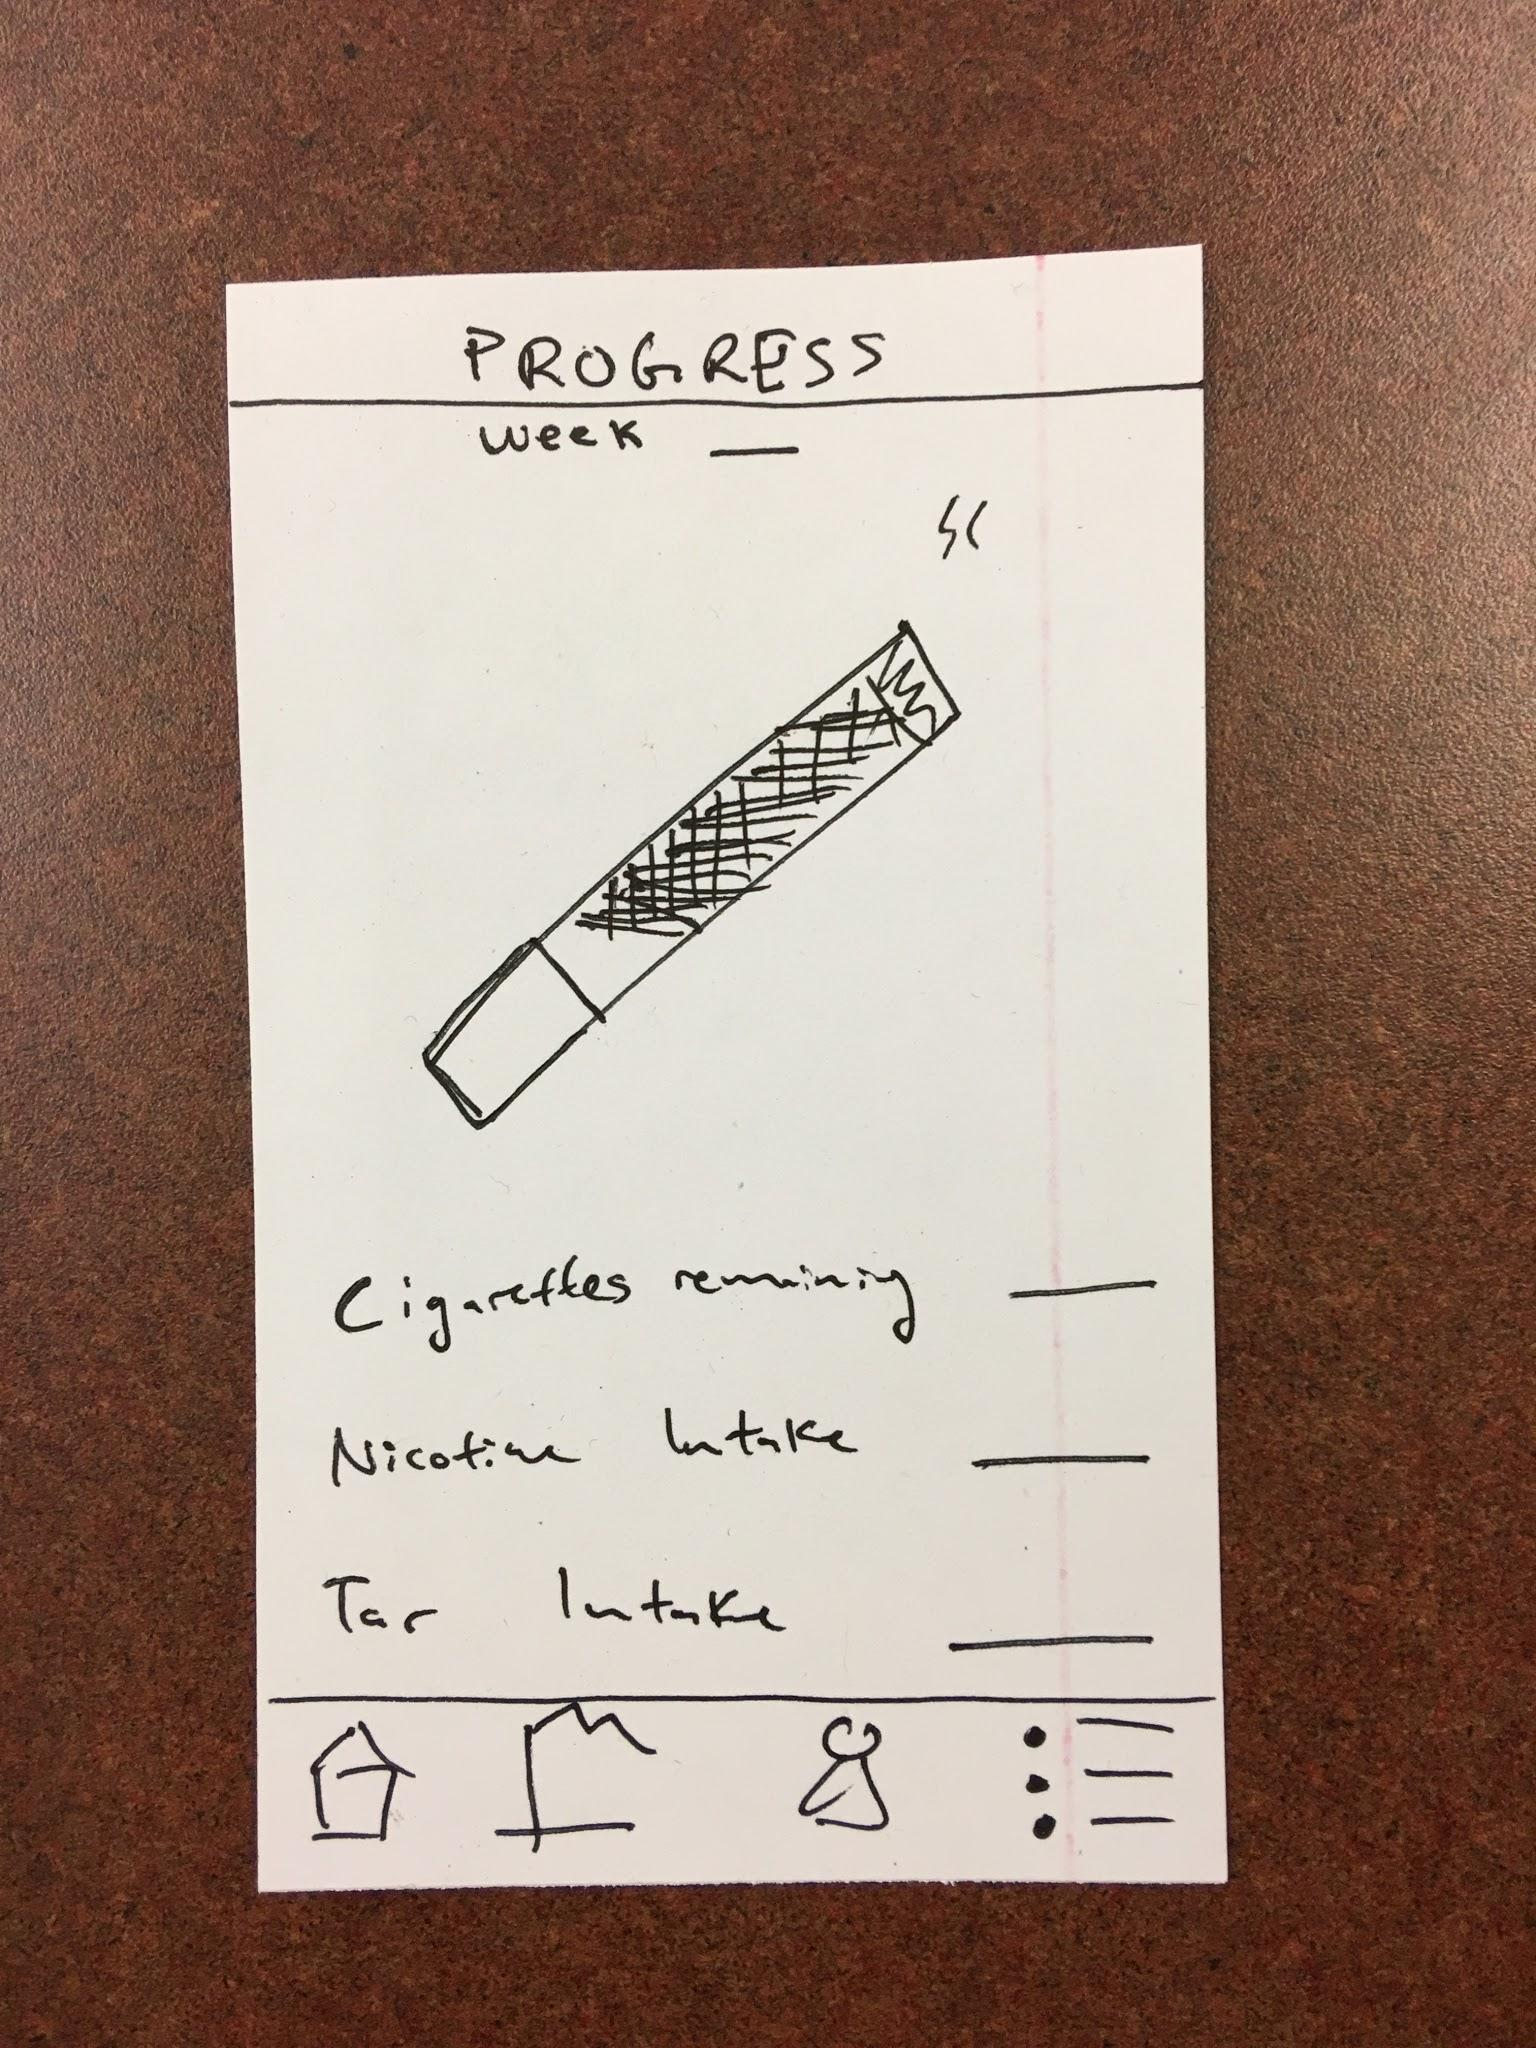 PROGRESS
week
Cigarettes remaining
Nicotine Intake
Tar Intake